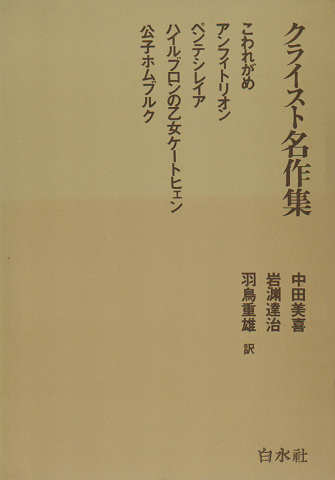 クライスト名作集
こわれがめ
アンフィトリオン
ペンテシレイア
ハイルブロンの乙女ケートヒェン
公子ホムブルク
中田美喜
岩淵達治
羽鳥重雄 訳
白水社